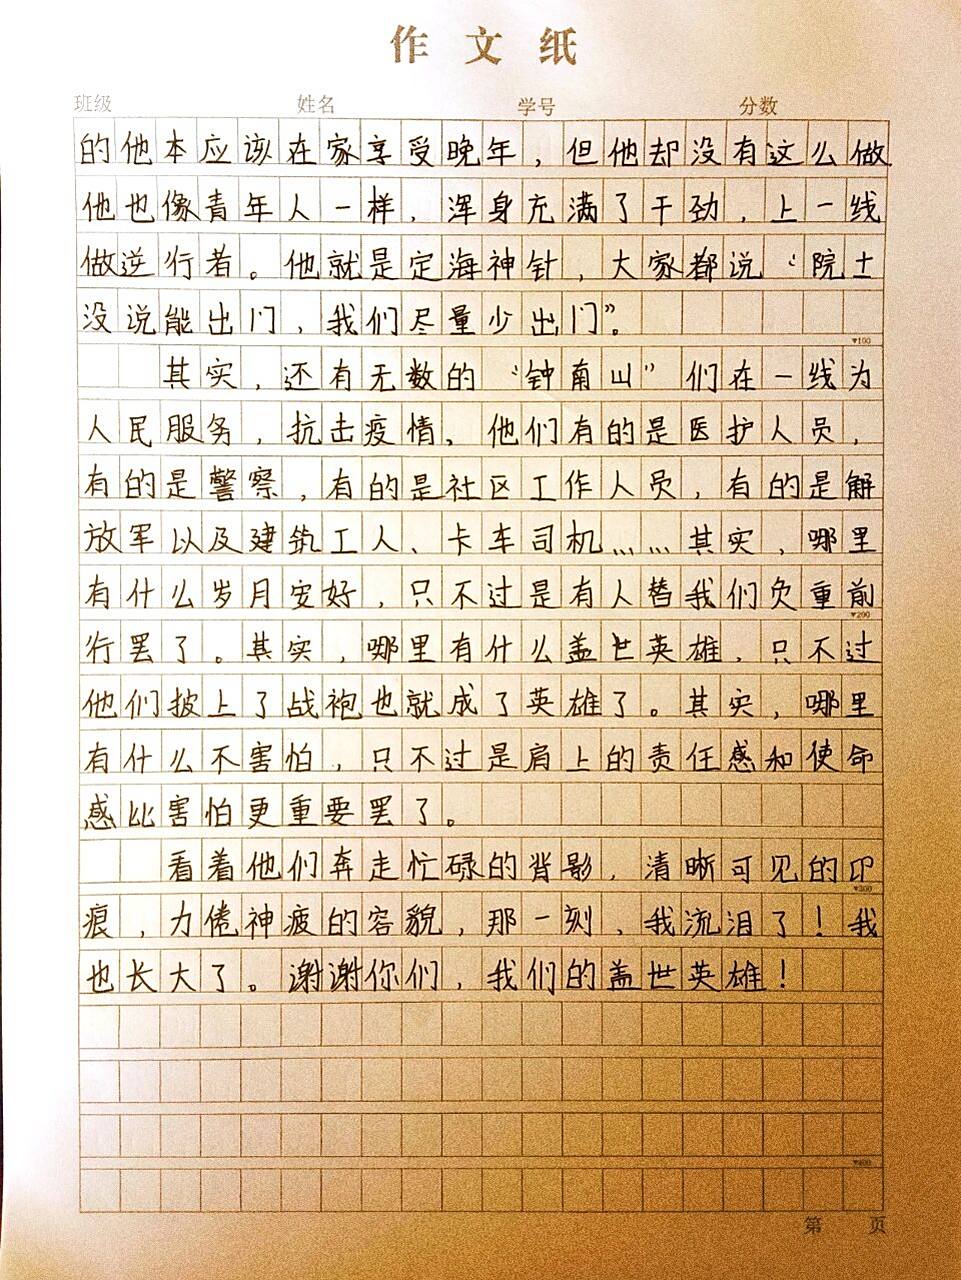 作文纸
班级 姓名 学号 分数
的他本应该在家享受晚年，但他却没有这么做
他也像青年人一样，浑身充满了干劲，上一线
做逆行者。他就是定海神针，大家都说“院士
没说能出门，我们尽量少出门”。
▼100
其实，还有无数的“钟南山”们在一线为
人民服务，抗击疫情，他们有的是医护人员，
有的是警察，有的是社区工作人员，有的是解
放军以及建筑工人、卡车司机……其实，哪里
有什么岁月安好，只不过是有人替我们负重前
▼200
行罢了。其实，哪里有什么盖世英雄，只不过
他们披上了战袍也就成了英雄了。其实，哪里
有什么不害怕，只不过是肩上的责任感和使命
感比害怕更重要罢了。
看着他们奔走忙碌的背影，清晰可见的印
▼300
痕，力倦神疲的容貌，那一刻，我流泪了！我
也长大了。谢谢你们，我们的盖世英雄！
▼400
第 页